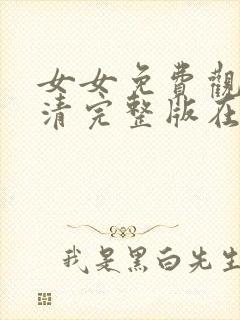 女女免費觀
清完整版在
我是黑白先生